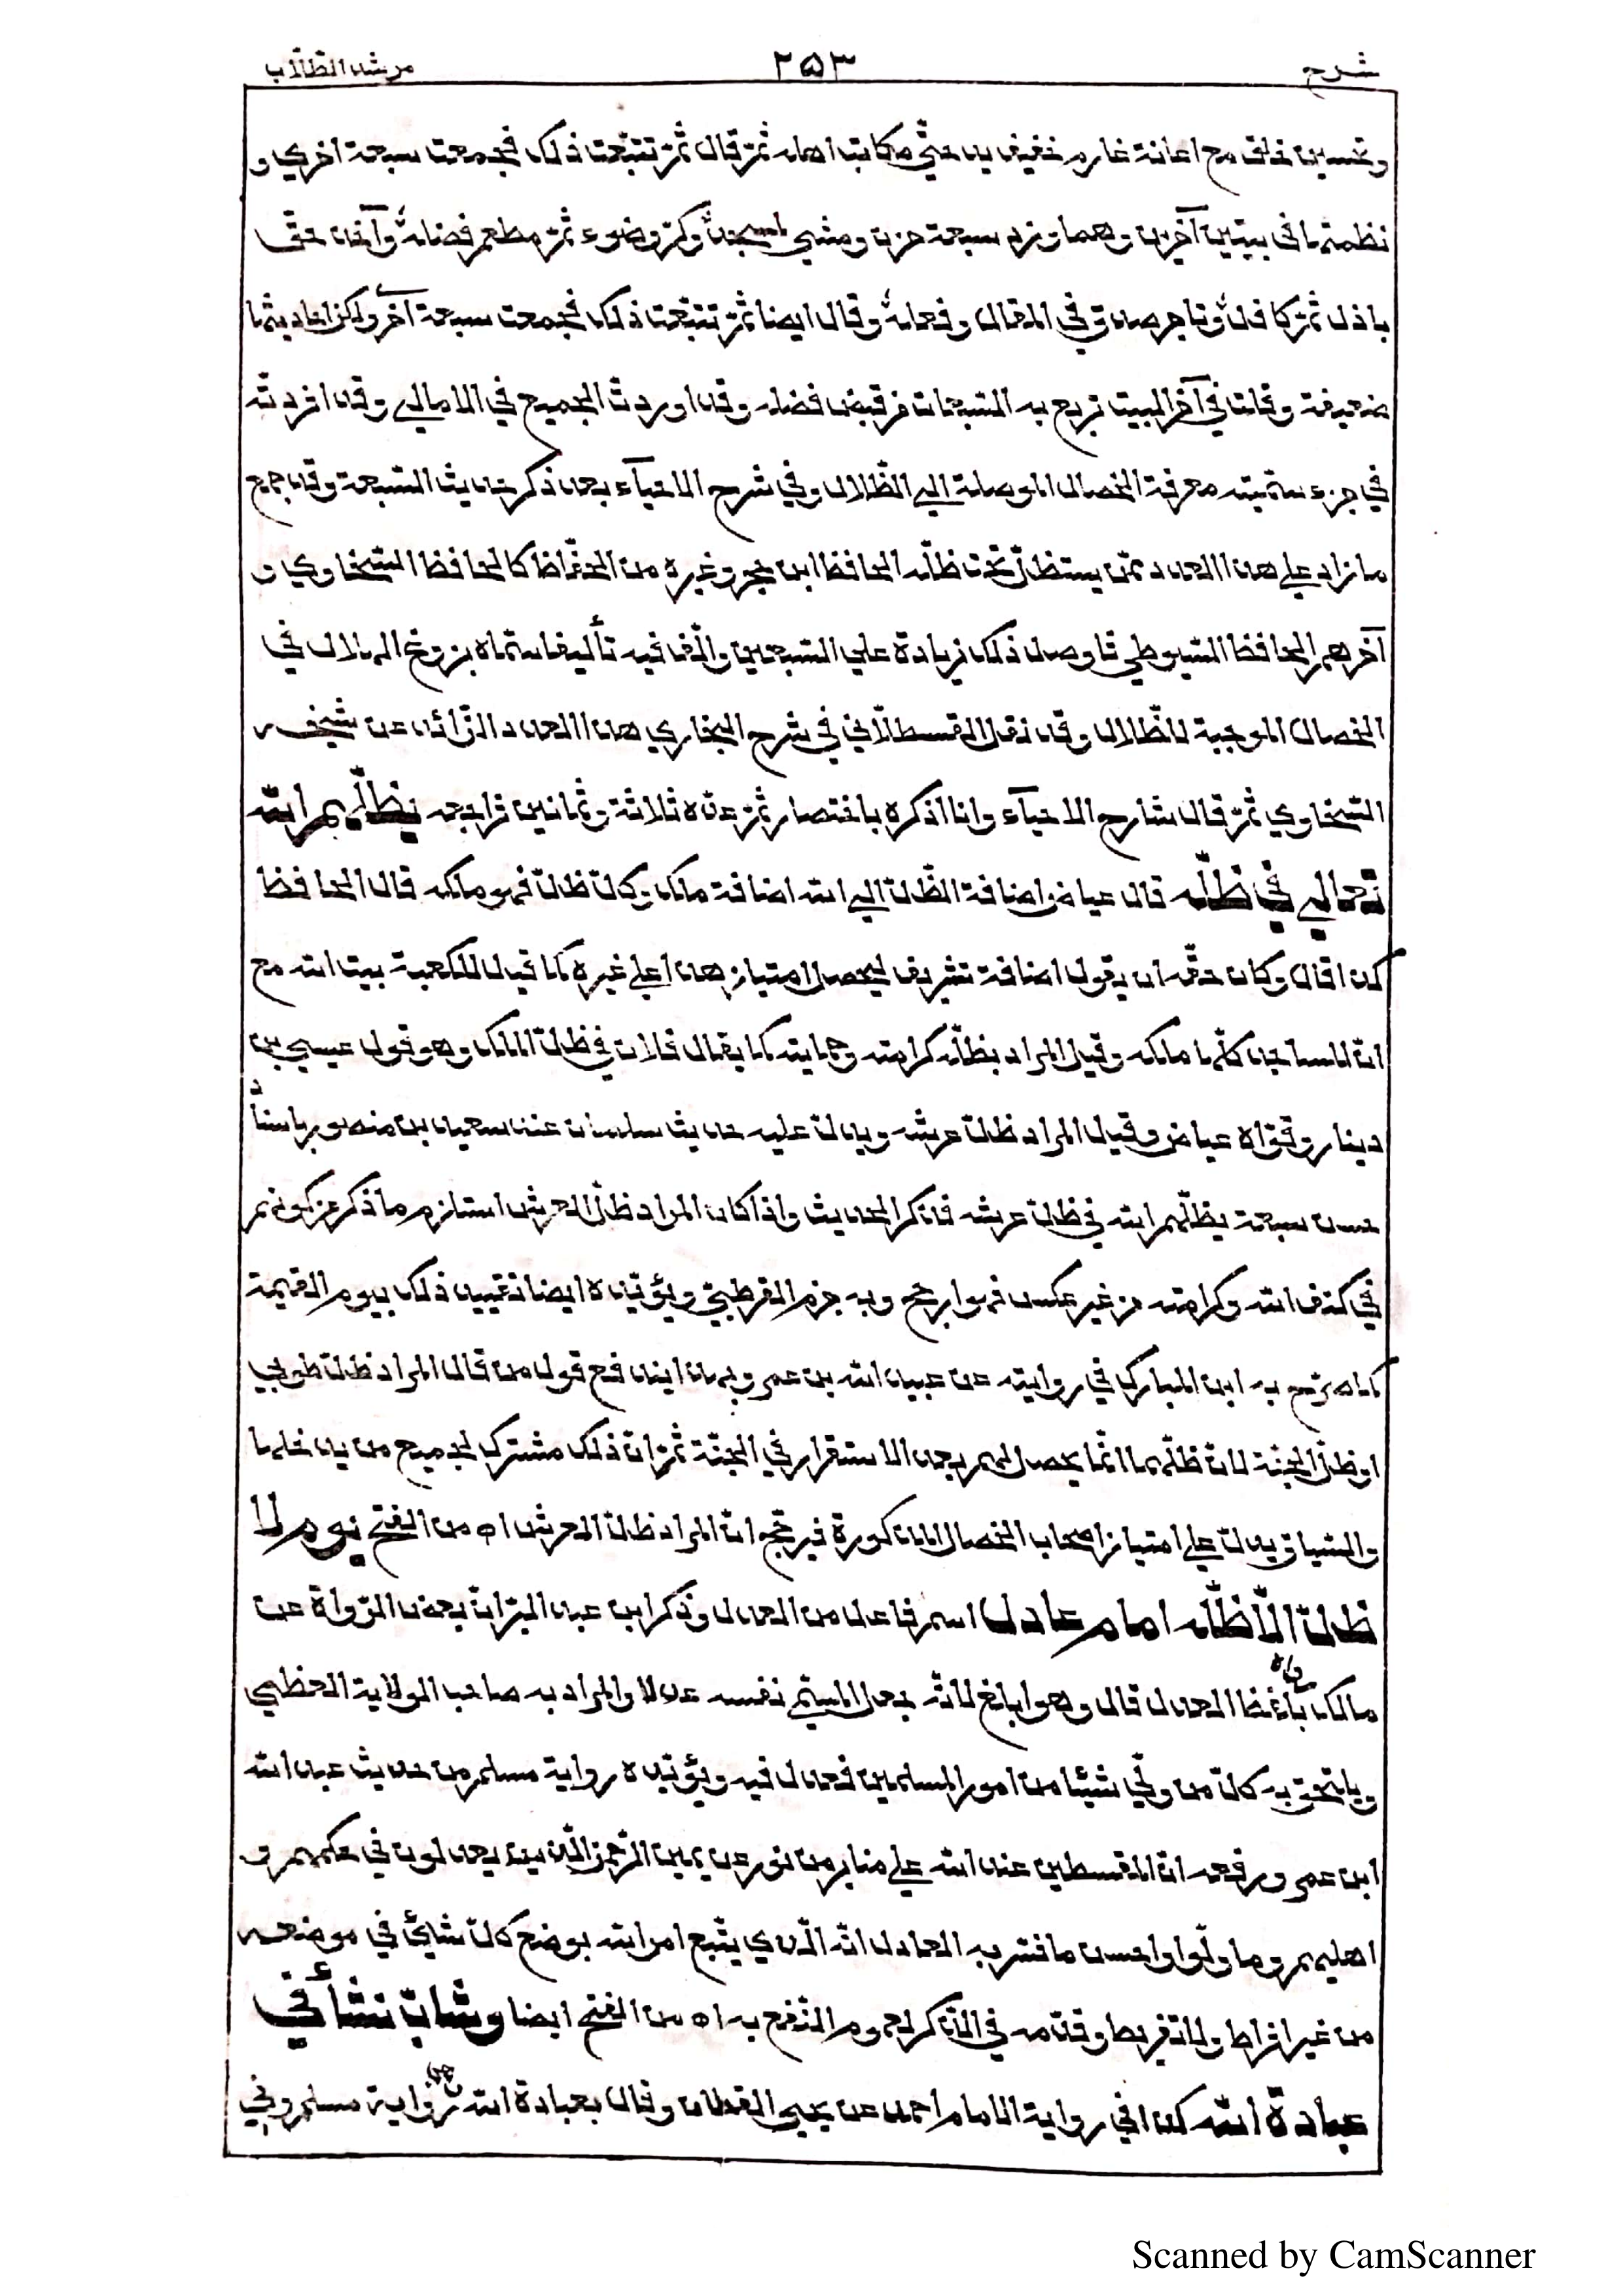 شرح ٢٥٣ مرشد الطّلّاب
وتحسين خلق مع اعانة غارم خفيف يد حتّي مكاتب اهله ثمّ قال ثمّ تتبّعت ذلك فجمعت سبعة اخري و
نظمتها في بيتين آخرين وهما وزد سبعة حزن ومشي لمسجد وكره وضوء ثمّ مطعم فضله وآخذ حقّ
باذل ثمّ كافل وتاجر صدق في المقال وفعله وقال ايضا ثمّ تتبّعت ذلك فجمعت سبعة آخر ولكن احاديثها
ضعيفة وقلت في آخر البيت تربع به السّبعات من فيض فضله وقد اوردت الجميع في الامالي وقد افردتّه
في جزء سمّيته معرفة الخصال الموصلة الي الظّلال وفي شرح الاحيآء بعد ذكر حديث السّبعة وقد جمع
ما زاد علي هذا العدد ممّن يستظلّ تحت ظلّه الحافظ ابن حجر وغيره من الحفّاظ كالحافظ السّخاوي و
آخرهم الحافظ السّيوطي فاوصل ذلك زيادة علي السّبعين والّف فيه تأليفا سمّاه بزوغ الهلال في
الخصال الموجبة للظّلال وقد نقل القسطلّاني في شرح البخاري هذا العدد الزّائد عن شيخه
السّخاوي ثمّ قال شارح الاحيآء وانا اذكره باختصار ثمّ عدّه ثلاثة وثمانين فراجعه يظلّهم الله
تعالي في ظلّه قال عياض اضافة الظّلّ الي الله اضافة ملك وكلّ ظلّ فهو ملكه قال الحافظ
كذا قال وكان حقّه ان يقول اضافة تشريف ليحصل امتياز هذا علي غيره كما قيل للكعبة بيت الله مع
انّ المساجد كلّها ملكه وقيل المراد بظلّه كرامته وحمايته كما يقال فلان في ظلّ الملك وهو قول عيسي بن
دينار وقوّاه عياض وقيل المراد ظلّ عرشه ويدلّ عليه حديث سلمان عند سعيد بن منصور باسناد
حسن سبعة يظلّهم الله في ظلّ عرشه فذكر الحديث واذا كان المراد ظلّ العرش استلزم ما ذكر من كونهم
في كنف الله وكرامته من غير عكس فهو ارجح وبه جزم القرطبيّ ويؤيّده ايضا تقييد ذلك بيوم القيمة
كما صرّح به ابن المبارك في روايته عن عبيد الله بن عمر وبهذا يندفع قول من قال المراد ظلّ طوبي
او ظلّ الجنّة لانّ ظلّهما انّما يحصل لهم بعد الاستقرار في الجنّة ثمّ انّ ذلك مشترك لجميع من يدخلها
والسّياق يدلّ علي امتياز اصحاب الخصال المذكورة فيرجّح انّ المراد ظلّ العرش اه من الفتح يوم لا
ظلّ الّا ظلّه امام عادل اسم فاعل من العدل وذكر ابن عبد البرّ انّ بعض الرّواة عن
مالك رواه بلفظ العدل قال وهو ابلغ لانّه جعل المسمّي نفسه عدلا والمراد به صاحب الولاية العظمي
ويلتحق به كلّ من ولي شيئا من امور المسلمين فعدل فيه ويؤيّده رواية مسلم من حديث عبد الله
ابن عمر ورفعه انّ المقسطين عند الله علي منابر من نور عن يمين الرّحمن الّذين يعدلون في حكمهم و
اهليهم وما ولّوا واحسن ما فسّر به العادل انّه الّذي يتّبع امر الله بوضع كلّ شيئ في موضعه
من غير افراط ولا تفريط وقدّمه في الذّكر لعموم النّفع به اه من الفتح ايضا وشابّ نشأ في
عبادة الله كذا في رواية الامام احمد عن يحيي القطّان وقال بعبادة الله وهي رواية مسلم وفي
Scanned by CamScanner